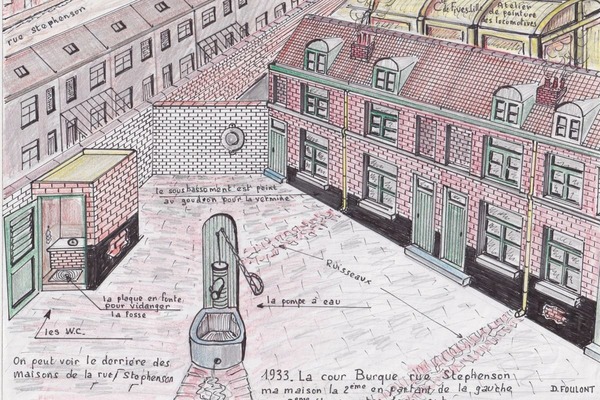 rue stephenson
Cie Fives-Lille
Atelier
de peinture
des locomotives
le soubassement est peint
au goudron pour la vermine
Ruisseaux
la plaque en fonte
pour vidanger
la fosse
la pompe à eau
les W.C.
On peut voir le derrière des
maisons de la rue Stephenson
1933. La cour Burque rue Stephenson
ma maison la 2ème en partant de la gauche
D. FOULONT